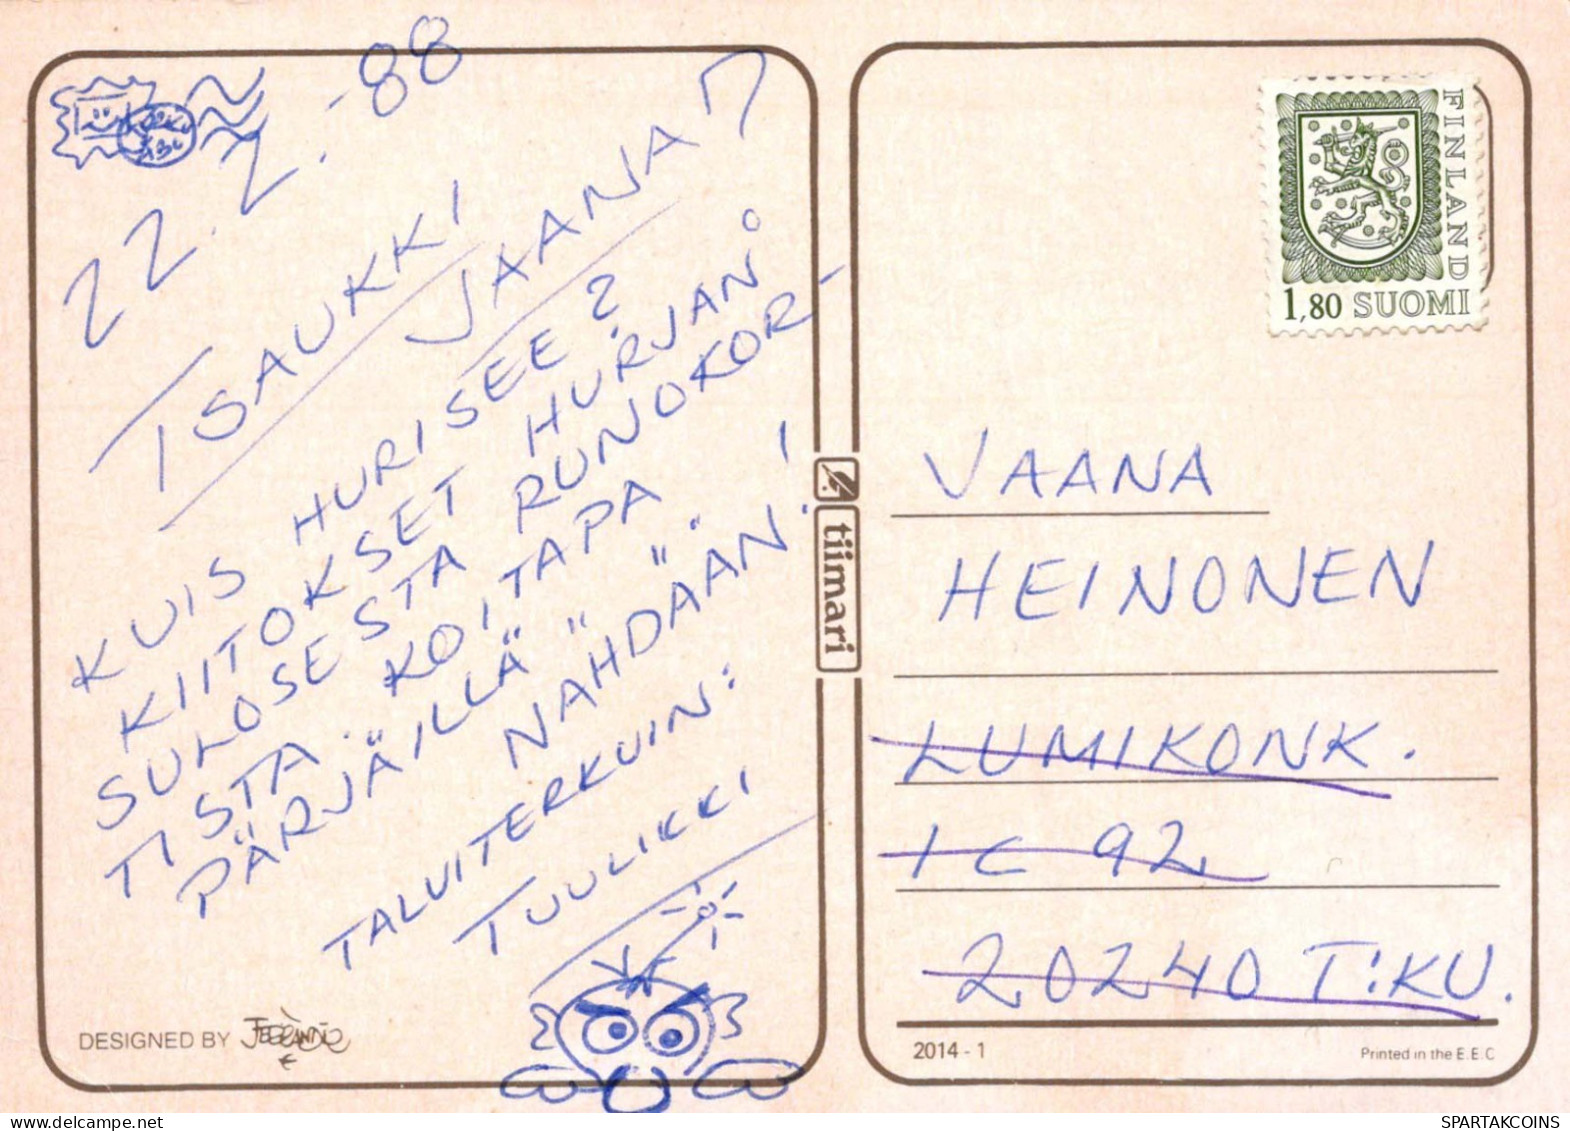 22.2.-88
TSAUKKI
JAANA
KUIS HURISEE?
KIITOKSET HURJAN
SULOSESTA RUNOKOR-
TISTA. KOITAPA
PÄRJÄILLÄ.
NÄHDÄÄN!
TALVITERKUIN:
TUULIKKI
DESIGNED BY
tiimari
FINLAND
1,80 SUOMI
JAANA
HEINONEN
LUMIKONK.
1 C 92
20240 T:KU.
2014 - 1
Printed in the E.E.C
SPARTAKCOINS.COM